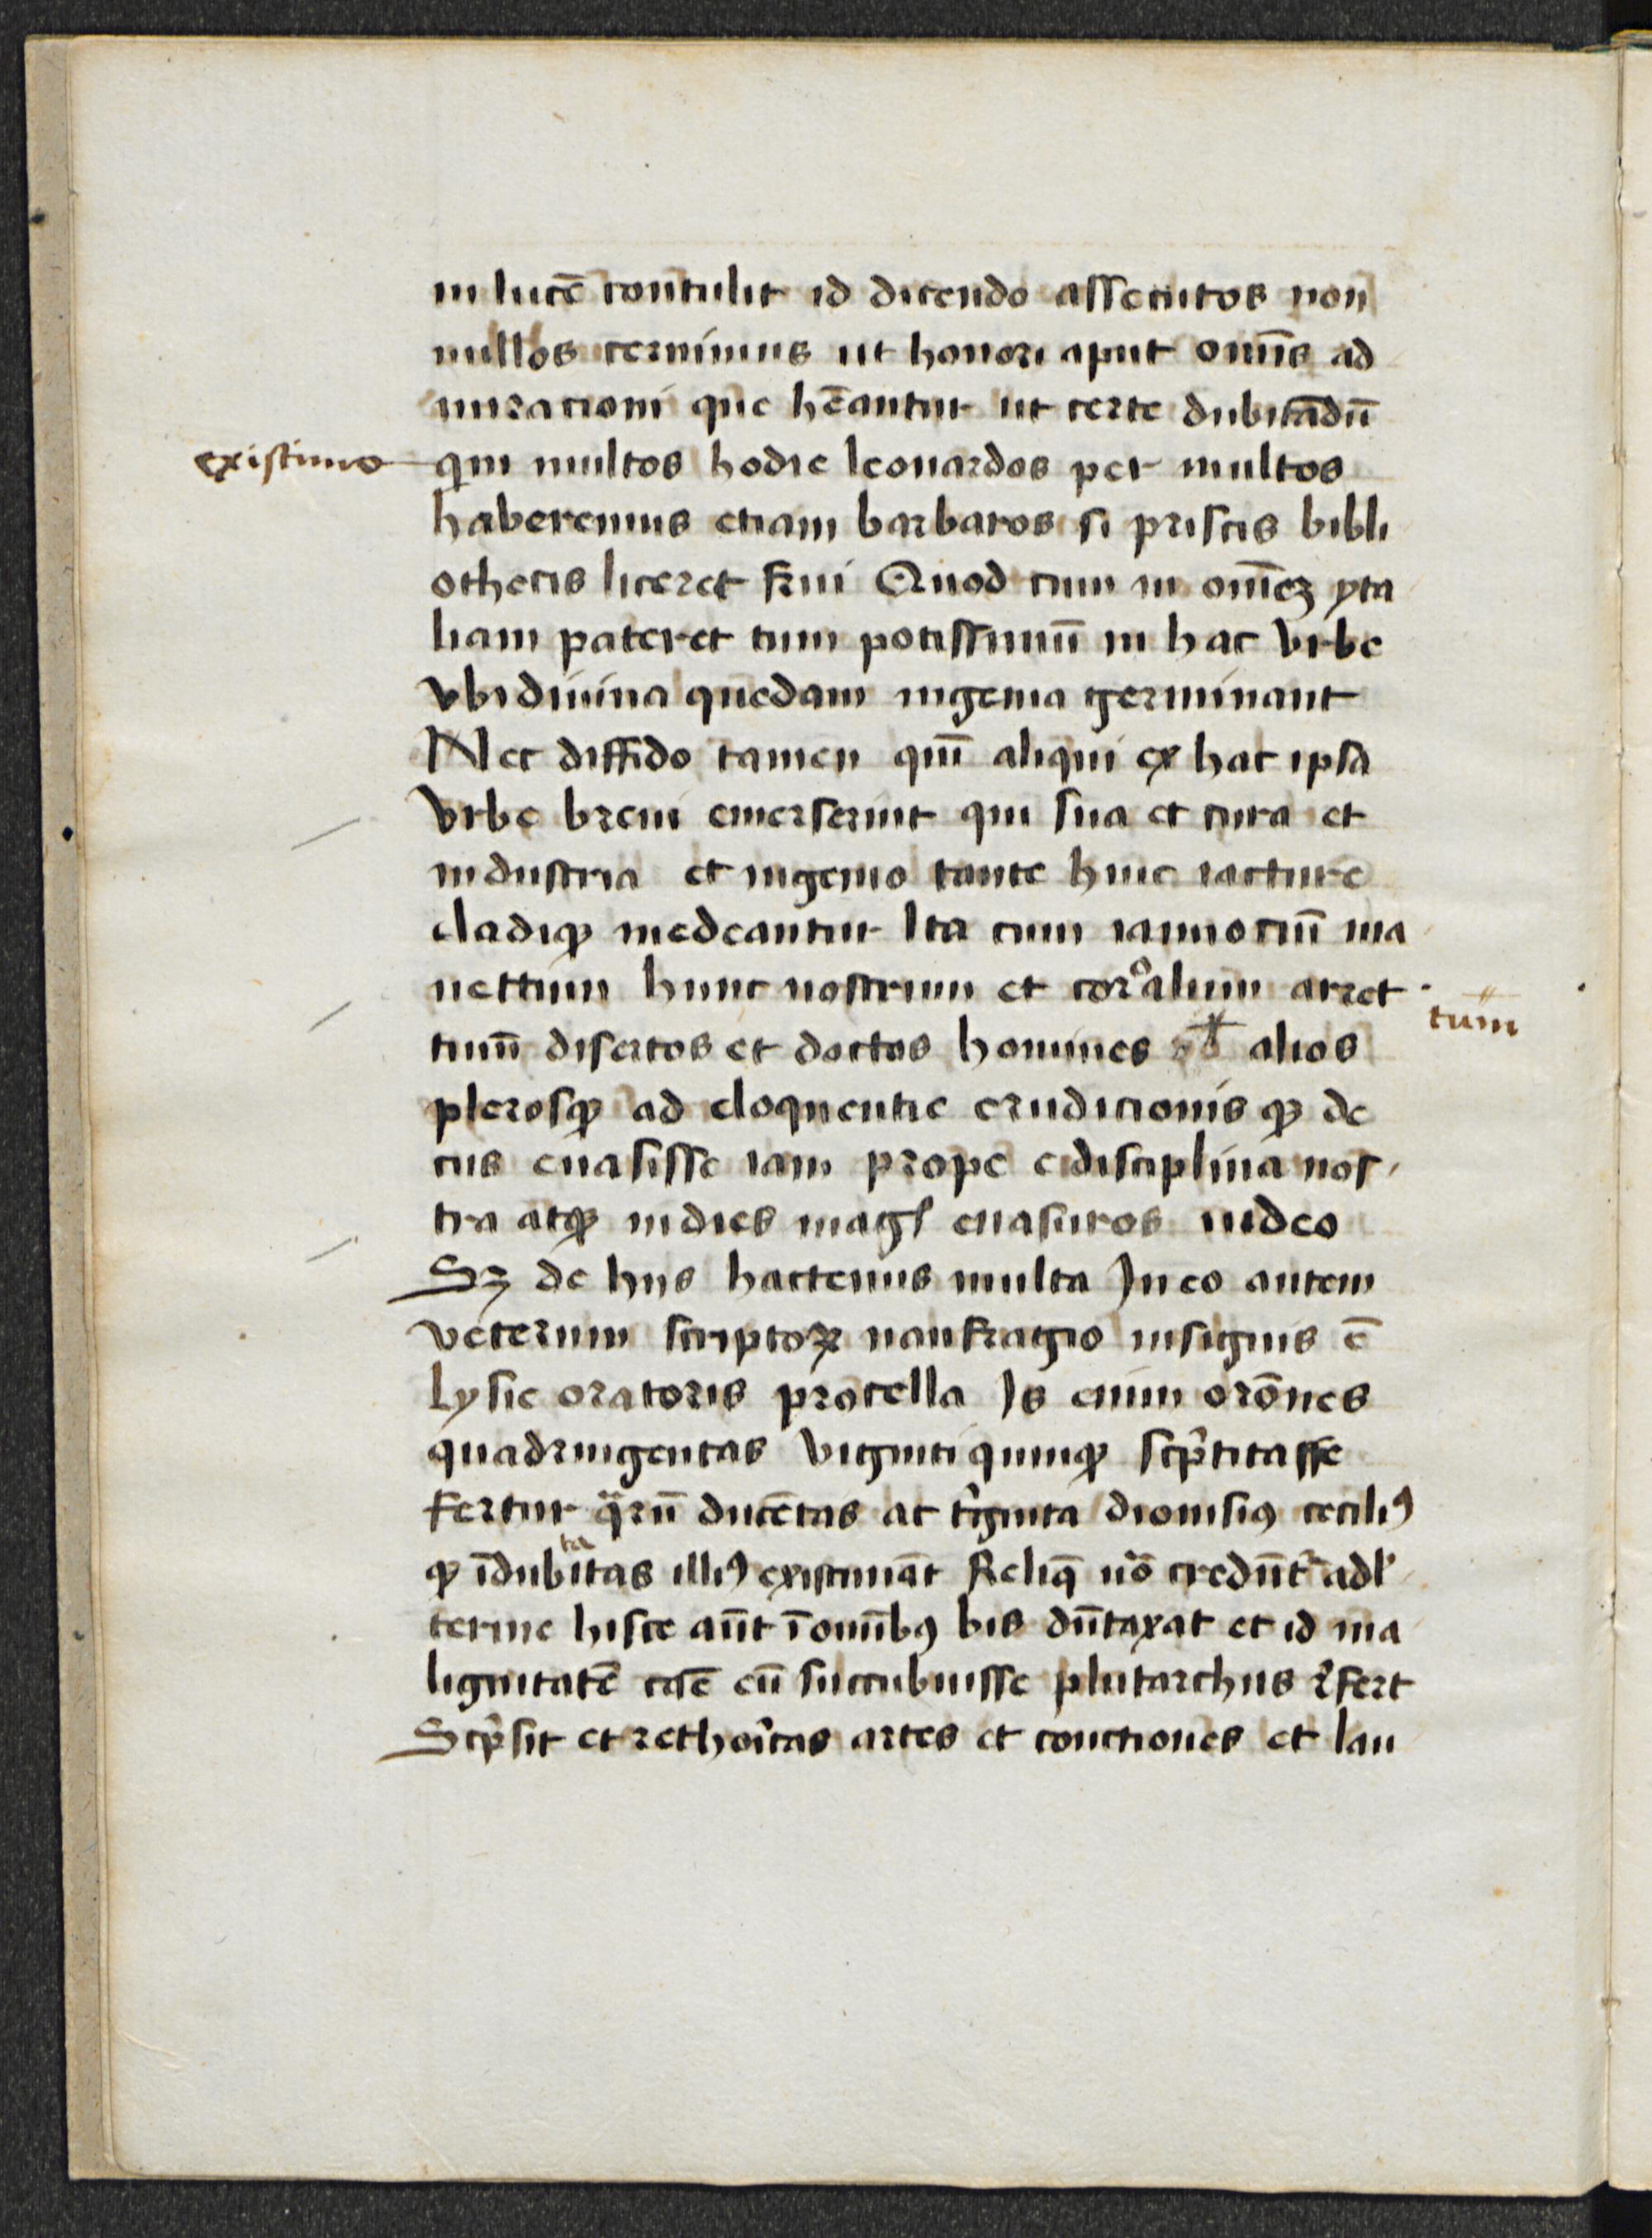 in lucē contulit id dicendo assecutos non
nullos cernimus ut honori aput om̄is ad
miracioni que hēantur ut certe dubitādū
existimo
qin multos hodie leonardos per multos
haberemus etiam barbaros si priscis bibli
othecis liceret frui Quod cum in om̄eꝫ yta
liam pateret tum potissimū in hac vrbe
vbi diuina quedam ingenia germinant
Nec diffido tamen quī aliqui ex hac ipsa
vrbe breui emerserint qui sua et cura et
industria et ingenio tante huic iacture
cladiqꝫ medeantur Ita cum iannociū ma
nettum hunc nostrum et coroalum arret
tūm
tinū disertos et doctos homines alios
plerosqꝫ ad eloquentie erudicionis qꝫ de
cus euasisse iam prope e disciplina nos
tra atqꝫ indies magꝭ euasuros uideo
Sꝫ de hiis hactenus multa In eo autem
veterum scriptoꝝ naufragio insignis ē
lysie oratoris procella Is enim orōnes
quadringentas viginti quinqꝫ scp̄titasse
fertur qarū ducētas ac tiginta dionisiꝰ ceciliꝰ
qꝫ īdubitas illiꝰ existimāt Reliqā nō credūtr adl
ta
terine hisce aūt ī om̄ibꝰ bis dūtaxat et id ma
lignitatē cāe eū succubuisse plutarchus rfert
Scp̄sit et rethoicas artes et conctiones et lau